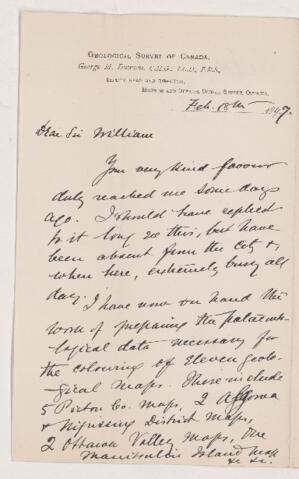 GEOLOGICAL SURVEY OF CANADA,
George M. Dawson, C.M.G., LL.D., F.R.S.,
DEPUTY HEAD AND DIRECTOR,
MUSEUM AND OFFICE, SUSSEX STREET, OTTAWA,
Feb. 18th 1897.
Dear Sir William
Your very kind favour
duly reached me some days
ago. I should have replied
to it long ere this, but have
been absent from the city &
when here, extremely busy all
day.
I have now on hand the
work of preparing the palaeonto-
logical data necessary for
the colouring of eleven geolo-
gical maps. These include
5 Pictou Co. maps, 2 Algoma
& Nipissing District maps,
2 Ottawa Valley maps, one
Manitoulin Island map
&c &c.